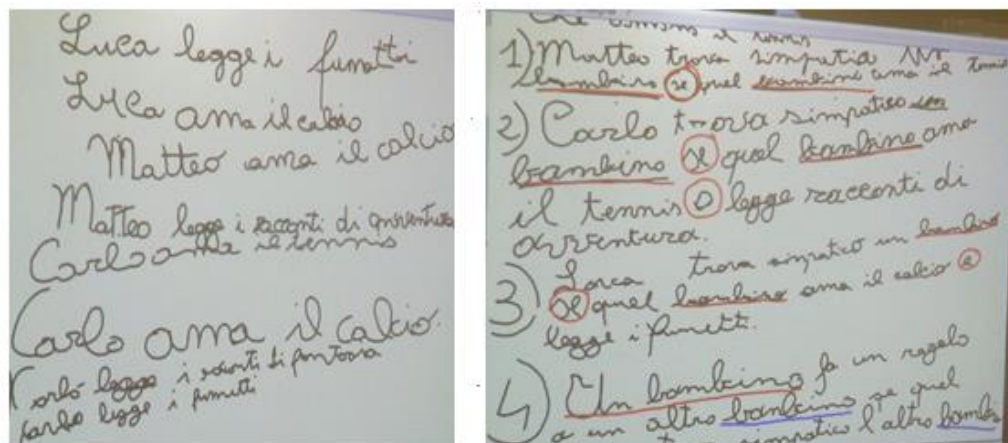 Luca legge i fumatti
Luca ama il calcio
Matteo ama il calcio
Matteo legge i racconti di avventura
Carlo ama il tennis
Carlo ama il calcio.
Carlo legge i racconti di
Carlo legge i fumetti
il tennis
1) Matteo trova simpatia un
bambino se quel bambini ama il tennis
2) Carlo trova simpatico un
bambino se quel bambino ama
il tennis o legge racconti di
avventura.
3) Lorca trova simpatico un bambino
se quel bambino ama il calcio e
legge i fumetti.
4) Un bambino fa un regalo
a un altro bambino se quel
simpatico l'altro